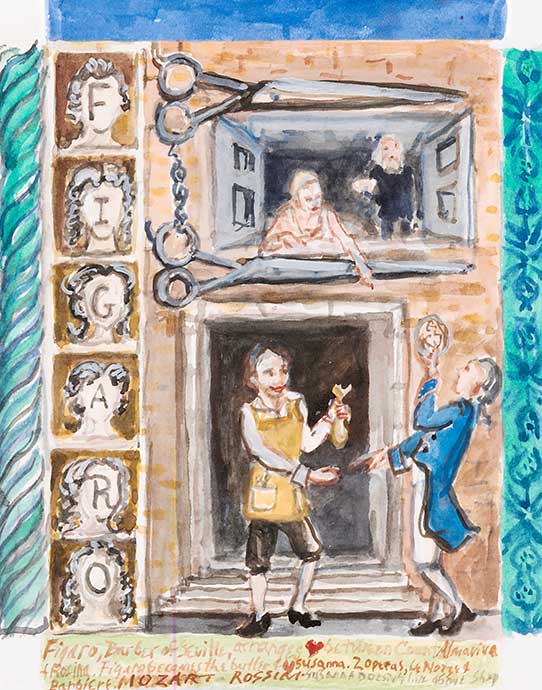 F
I
G
A
R
O
Figaro, Barber of Seville, arranges ♥ between Count Almaviva
& Rosina. Figaro becomes the butler & Susanna. 2 operas, Le Nozze &
Barbiere. MOZART ROSSINI Susanna